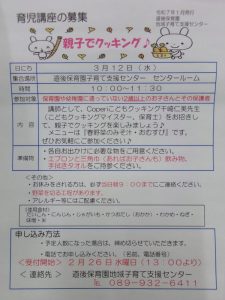 育児講座の募集
令和7年1月発行
道後保育園
地域子育て支援センター
親子でクッキング♪
日にち 3月12日(水)
集合場所 道後保育園子育て支援センター センタールーム
時間 10:00~11:30
参加対象 保育園や幼稚園に通っていない2歳以上のお子さんとその保護者
内容
講師として、Copenこどもクッキング
(こどもクッキングマイスター、保育士)をお招きし
て、親子でクッキングを楽しみましょう♪
メニューは「春野菜のみそ汁・おむすび」です。
ぜひお気軽にご参加ください!
準備物
各自お出かけに必要な物をご用意ください。
エプロンと三角巾(あればお子さんも)飲み物、
手拭きタオルをご持参ください。
<その他>
・お休みをされる方は、必ず当日朝9:00までにご連絡ください。
・野菜を切る工程があります。
・アレルギー等にはご配慮ください。
だいこん・にんじん・じゃがいも・かつおだし・(おかか)・わかめ・ねぎ・
味噌・米
申し込み方法
・予定人数になった場合は、締め切らせていただきます。
・電話でお申し込みください。(名前、電話番号)
<受付開始> 2月26日水曜日(13:00より)
<連絡先> 道後保育園地域子育て支援センター
TEL 089-932-6411